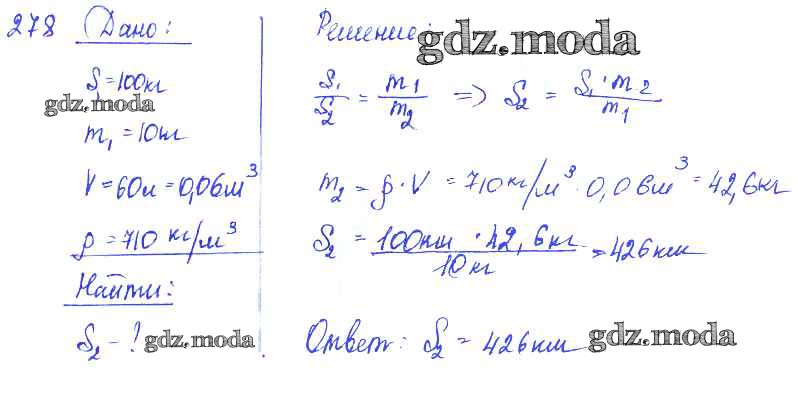 278 Дано:
S₁=100кг
gdz.moda
m₁=10кг
V=60л=0,06м³
ρ=710 кг/м³
Найти:
S₂-?
gdz.moda
Решение:
gdz.moda
S₁/S₂ = m1/m₂ => S₂ = S₁·m2/m1
m₂ = ρ·V = 710кг/м³·0,06м³=42,6кг
S₂ = 100км·42,6кг/10кг = 426км
Ответ: S₂ = 426км
gdz.moda